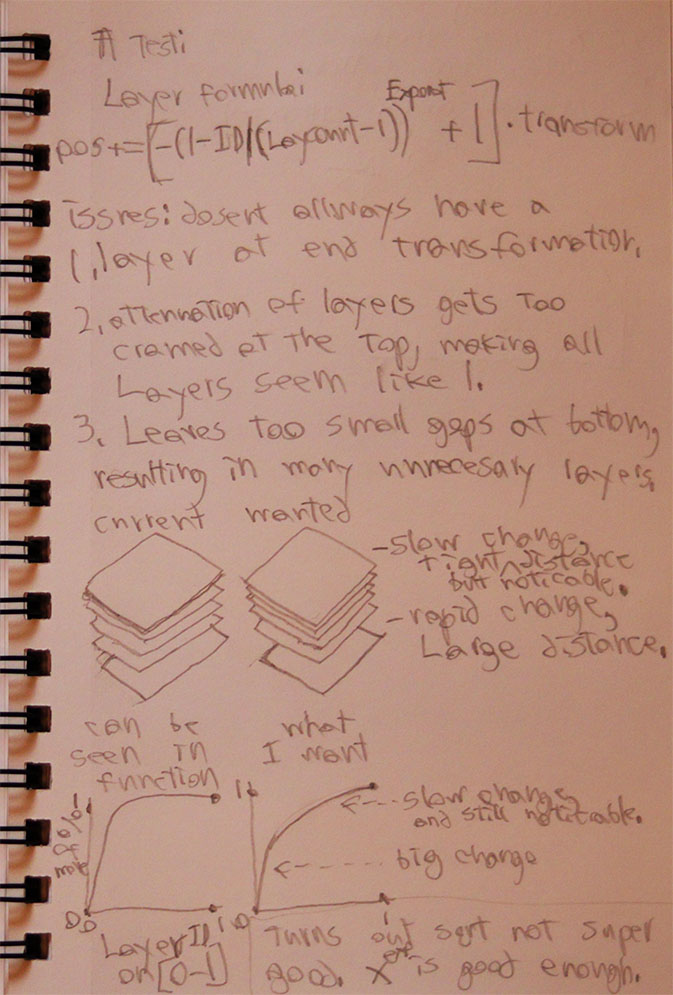 # Testi
Layer formulai
pos+=[-(1-ID/(Laycount-1))^Expont + 1] · transform
issues: dosent allways have a
1, layer at end transformation,
2, attenuation of layers gets too
cramed at the top, making all
Layers seem like 1.
3. Leaves too small gaps at bottom,
resulting in many unnecesary layers.
current wanted
-slow change,
tight distance
but noticable.
-rapid change,
Large distance.
can be
seen in
function
what
I want
1
%
of
move
0 0
1
Layer ID
on [0-1]
1
<--- slow change,
and still noticable.
<---- big change
0
1
Turns out sqrt not super
good. x^ext is good enough.